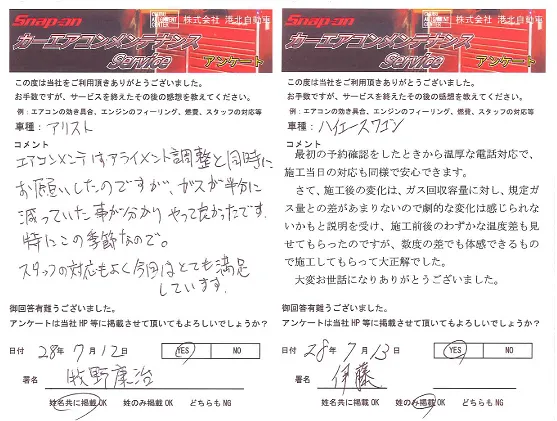 Snap-on 株式会社 港北自動車
カーエアコンメンテナンス
Service アンケート
この度は当社をご利用頂きありがとうございました。
お手数ですが、サービスを終えたその後の感想を教えてください。
例：エアコンの効き具合、エンジンのフィーリング、燃費、スタッフの対応等
車種：アリスト
コメント
エアコンメンテはアライメント調整と同時に
お願いしたのですが、ガスが半分に
減っていた事が分かり やって良かったです.
特にこの季節なので。
スタッフの対応もよく今回はとても満足
しています.
御回答有難うございました。
アンケートは当社 HP 等に掲載させて頂いてもよろしいでしょうか？
日付 28年 7月12日 YES NO
署名 牧野康治
姓名共に掲載OK 姓のみ掲載OK どちらもNG
Snap-on 株式会社 港北自動車
カーエアコンメンテナンス
Service アンケート
この度は当社をご利用頂きありがとうございました。
お手数ですが、サービスを終えたその後の感想を教えてください。
例：エアコンの効き具合、エンジンのフィーリング、燃費、スタッフの対応等
車種：ハイエースワゴン
コメント
最初の予約確認をしたときから温厚な電話対応で、
施工当日の対応も同様で安心できます。
さて、施工後の変化は、ガス回収容量に対し、規定ガ
ス量との差があまりないので劇的な変化は感じられな
いかもと説明を受け、施工前後のわずかな温度差も見
せてもらったのですが、数度の差でも体感できるもの
で施工してもらって大正解でした。
大変お世話になりありがとうございました。
御回答有難うございました。
アンケートは当社 HP 等に掲載させて頂いてもよろしいでしょうか？
日付 28年 7月13日 YES NO
署名 伊藤
姓名共に掲載OK 姓のみ掲載OK どちらもNG